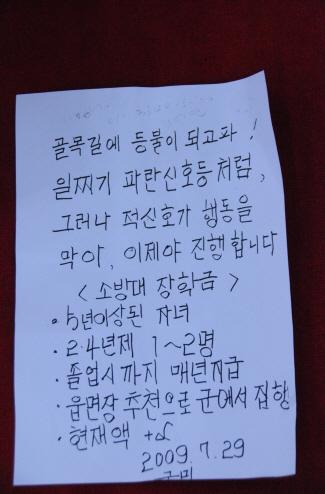 골목길에 등불이 되고파!
일찌기 파란신호등처럼,
그러나 적신호가 행동을
막아, 이제야 진행합니다
< 소방대 장학금 >
· 5년이상된 자녀
· 2·4년제 1~2명
· 졸업시까지 매년지급
· 읍면장 추천으로 군에서 집행
· 현재액 +α
2009.7.29